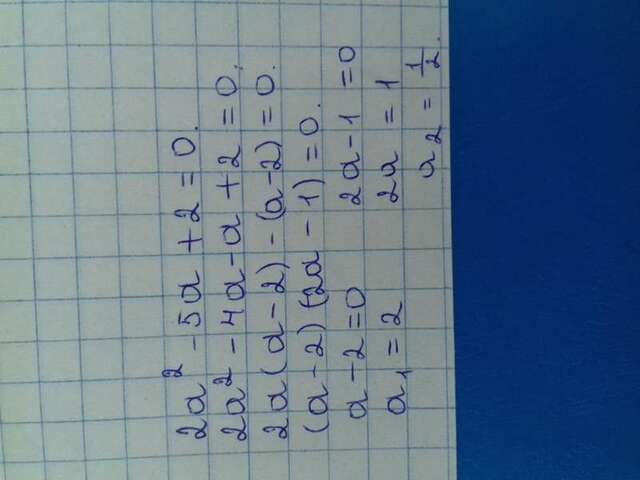 2a² - 5a + 2 = 0.
2a² - 4a - a + 2 = 0.
2a(a - 2) - (a - 2) = 0.
(a - 2)(2a - 1) = 0.
a - 2 = 0 2a - 1 = 0
a₁ = 2 2a = 1
a₂ = 1/2.